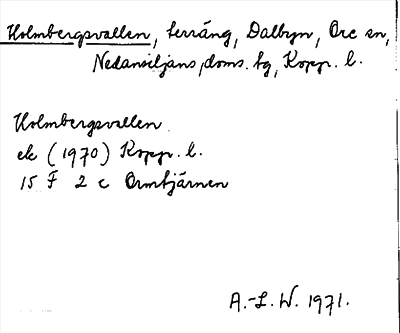 Holmbergsvallen, terräng, Dalbyn, Ore sn,
Nedansiljans doms. tg, Kopp. l.
Holmbergsvallen
ek (1970) Kopp. l.
15 F 2 c Ormtjärnen
A.-L. W. 1971.